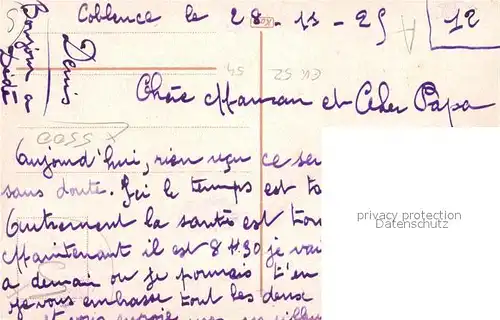 Coblence le 28-11-25
12
Bonjour a Dédé
Denis
Chère Maman et Cher Papa
Aujourd'hui, rien reçu ce se
sans doute. Ici le temps est to
Autrement la santé est tou
Maintenant il est 8 H 30 je vai
a demain ou je pourrais t'en
je vous embrasse tout les deux
et vous envoie
privacy protection
Datenschutz